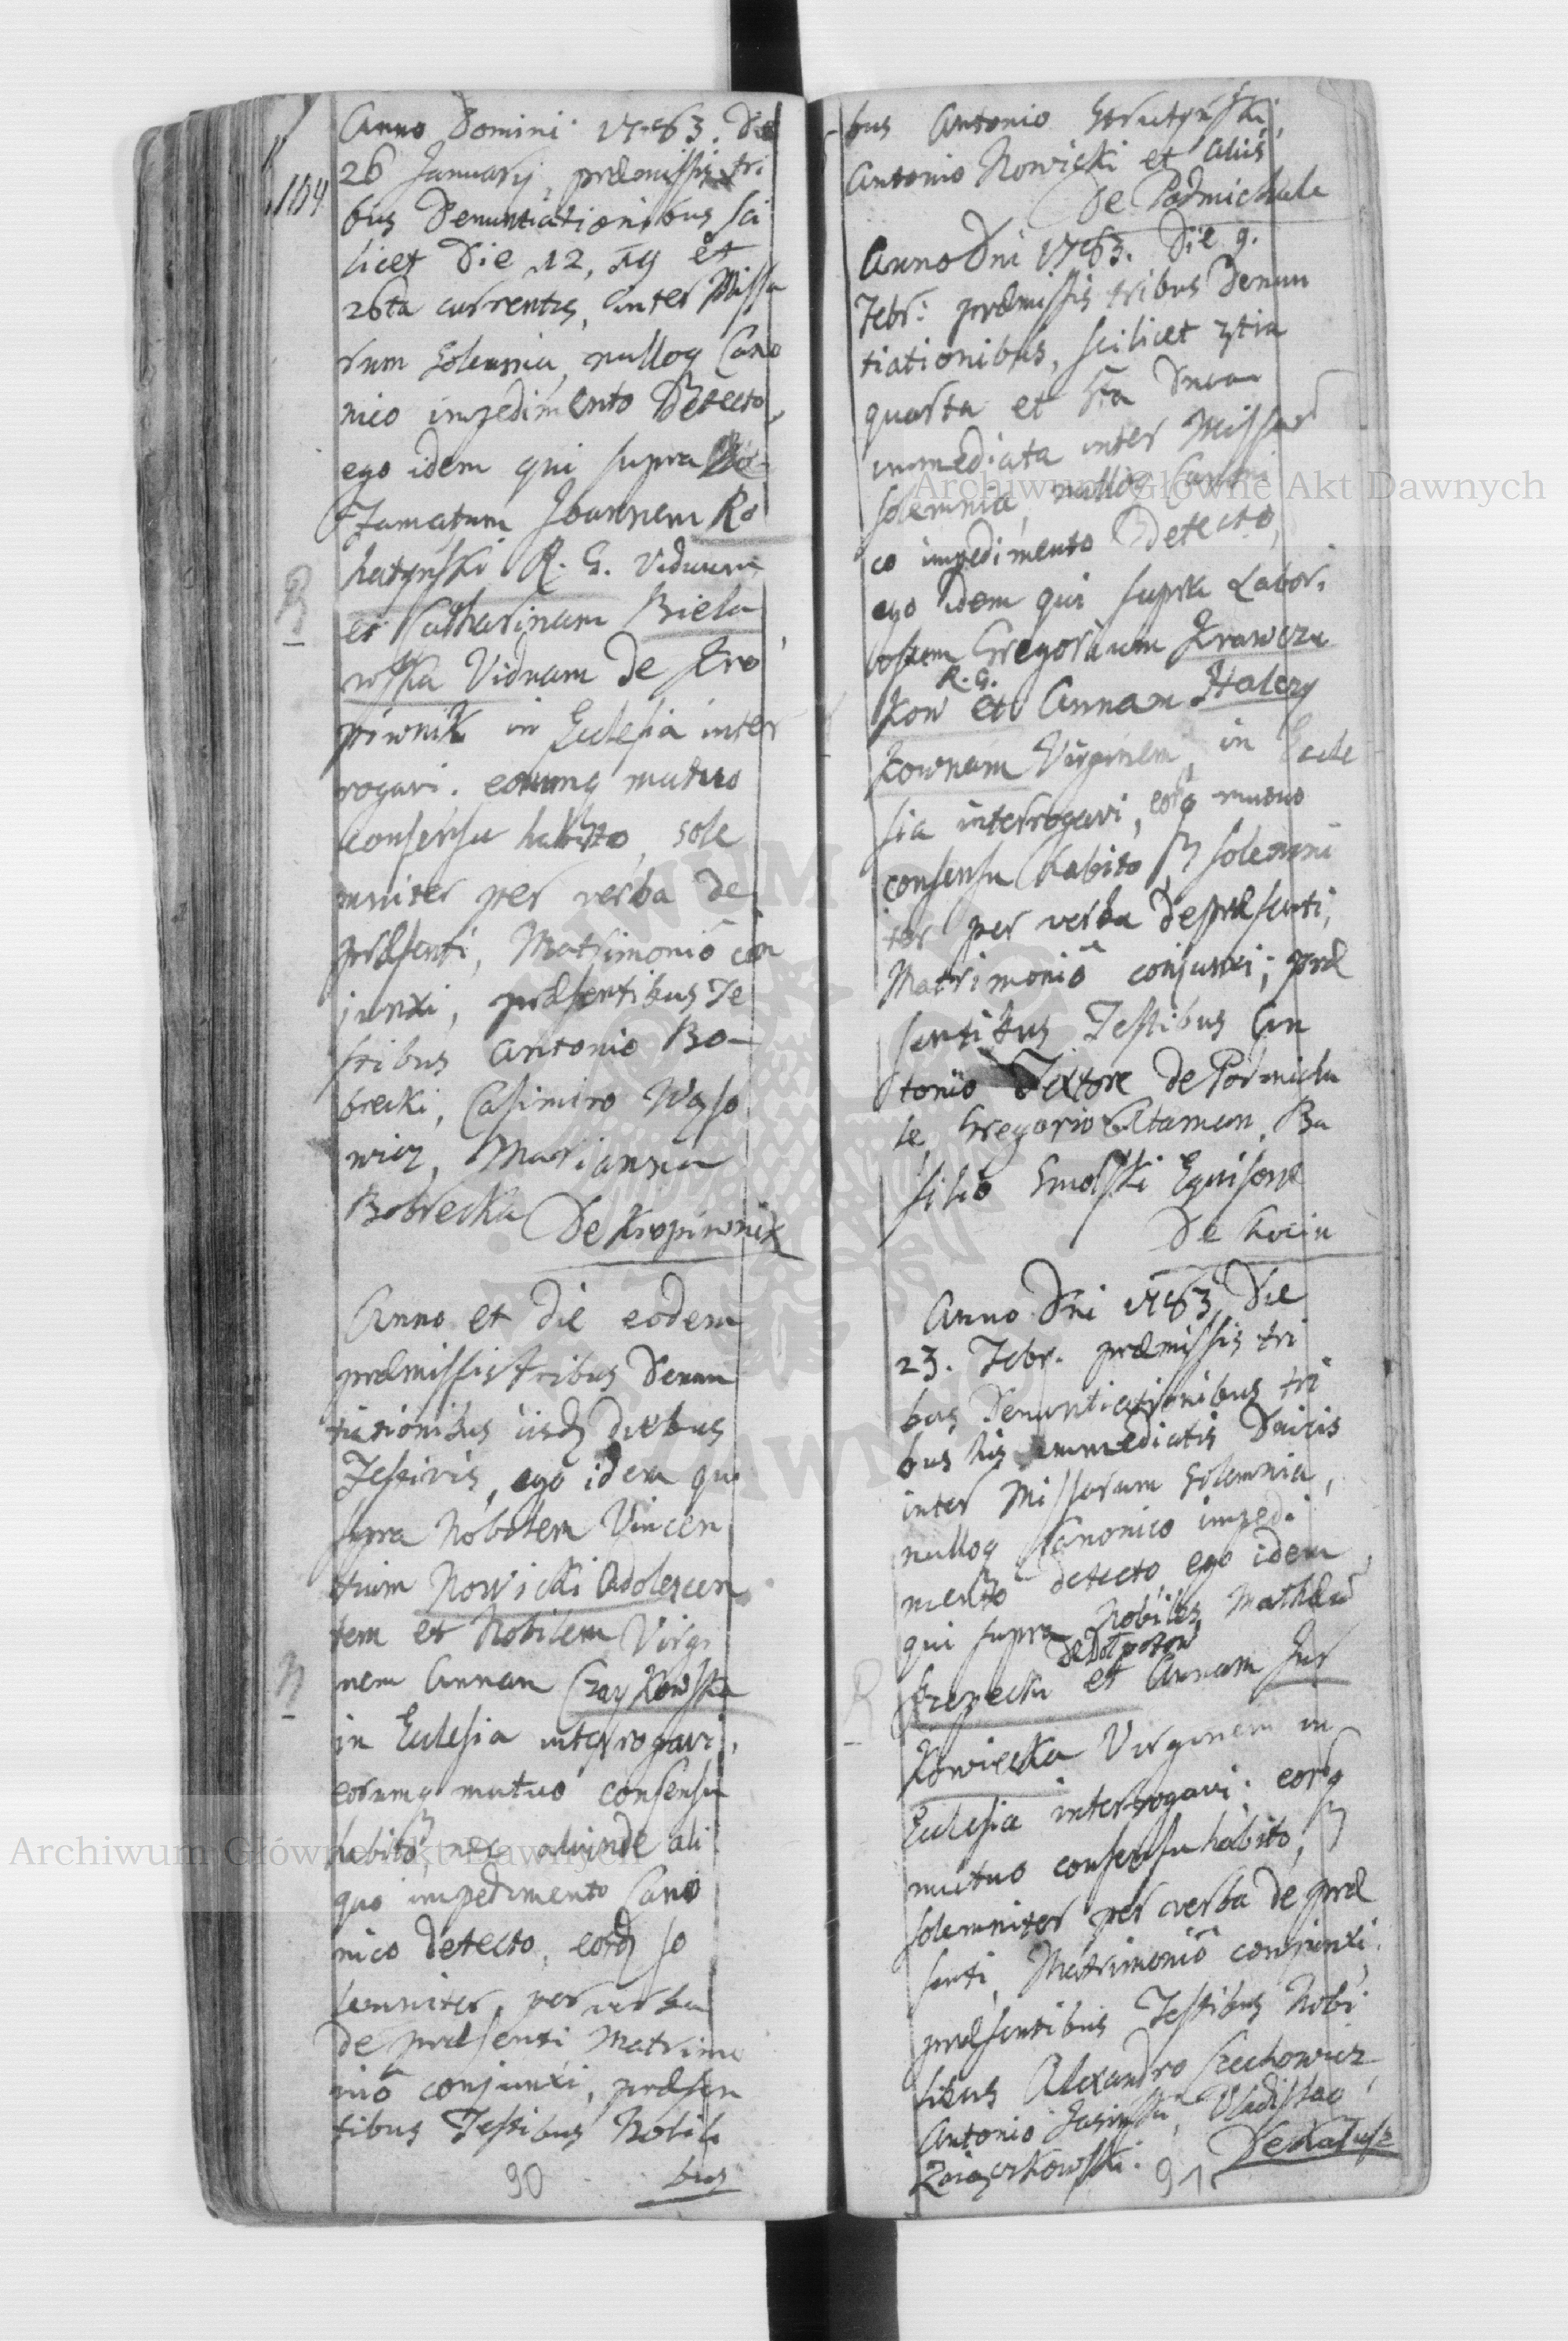 Anno Domini 1763. Die
104
26 Januarij, præmissis tri
bus Denuntiationibus sci
licet Die 12, 19 et
26ta currentis, inter Missa
rum Solemnia, nulloq Cano
nico impedimento detecto,
ego idem qui supra
Famatum Joannem Ro
hatyński R. G. Viduum
et Catharinam Biela
wska Viduam de Kro
piwnik in Eclesia inter
rogavi. eorumq mutuo
consensu habito, sole
mniter per verba de
præsenti, Matrimonio con
junxi, præsentibus Te
stibus Antonio Bo-
brecki, Casimiro Wąso
wicz, Marianna
Bobrecka De Kropiwnik
Anno et Die eodem
præmissis tribus Denun
tiationibus iisdq diebus
Festivis, ego idem qui
supra Nobilem Vincen
tium Nowicki Adolescen
tem et Nobilem Virgi
nem Annam Czaykowska
in Eclesia interrogavi,
eorumq mutuo consensu
habito, nec aliunde ali
quo impedimento Cano
nico detecto, eosdq so
lemniter, per verba
de præsenti Matrimo
nio conjunxi, præsen
tibus Testibus Nobili
bus
90
bus Antonio Strutyński,
Antonio Nowicki et aliis
De Podmichale
Anno Dni 1763. Die 9.
Febr: præmissis tribus Denun
tiationibus, scilicet 3tia
quarta et 5ta Dnca
immediata inter Missar
solemnia, nulloq Canoni
co impedimento detecto,
ego idem qui supra Labori
osum Gregorium Krawczu
R. G.
kow et Annam Halczy
kownam Virginem, in Ecle
sia interrogavi, eorq mutuo
consensu habito, solemni
ter per verba de præsenti,
Matrimonio conjunxi; præ
sentibus Testibus An
tonio Textore de Podmicha
le, Gregorio Ataman, Ba
silio Smolski Equisone
De Hocin
Anno Dni 1763 Die
23. Febr. præmissis tri
bus Denuntiationibus tri
bus his immediatis Dnicis
inter Missarum solemnia,
nulloq Canonico impedi
mento detecto ego idem
qui supra Nobiles Mathæu
et Annam Jur
kowiecka Virginem in
Eclesia interrogavi; eorq
mutuo consensu habito,
solemniter per verba de præ
senti, Matrimonio conjunxi,
præsentibus Testibus Nobi
libus Alexandro Czechowicz,
Antonio Jasinski, Vladislao
Zaiączkowski. De Kałusz
91
Archiwum Główne Akt Dawnych
Archiwum Główne Akt Dawnych